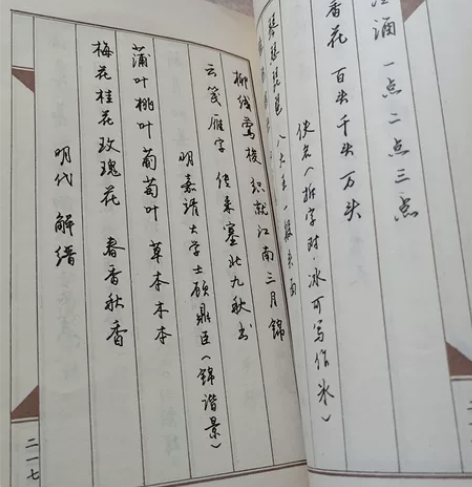 酒 一点二点三点
香花 百头千头万头
佚名（拆字对·冰可写作氷）
琴瑟琵琶 八大王一般头面
柳线莺梭 织就江南三月锦
云笺雁字 传来塞北九秋书
明嘉靖大学士顾鼎臣（锦谐景）
蒲叶桃叶葡萄叶 草本木本
梅花桂花玫瑰花 春香秋香
明代 解缙
二一七